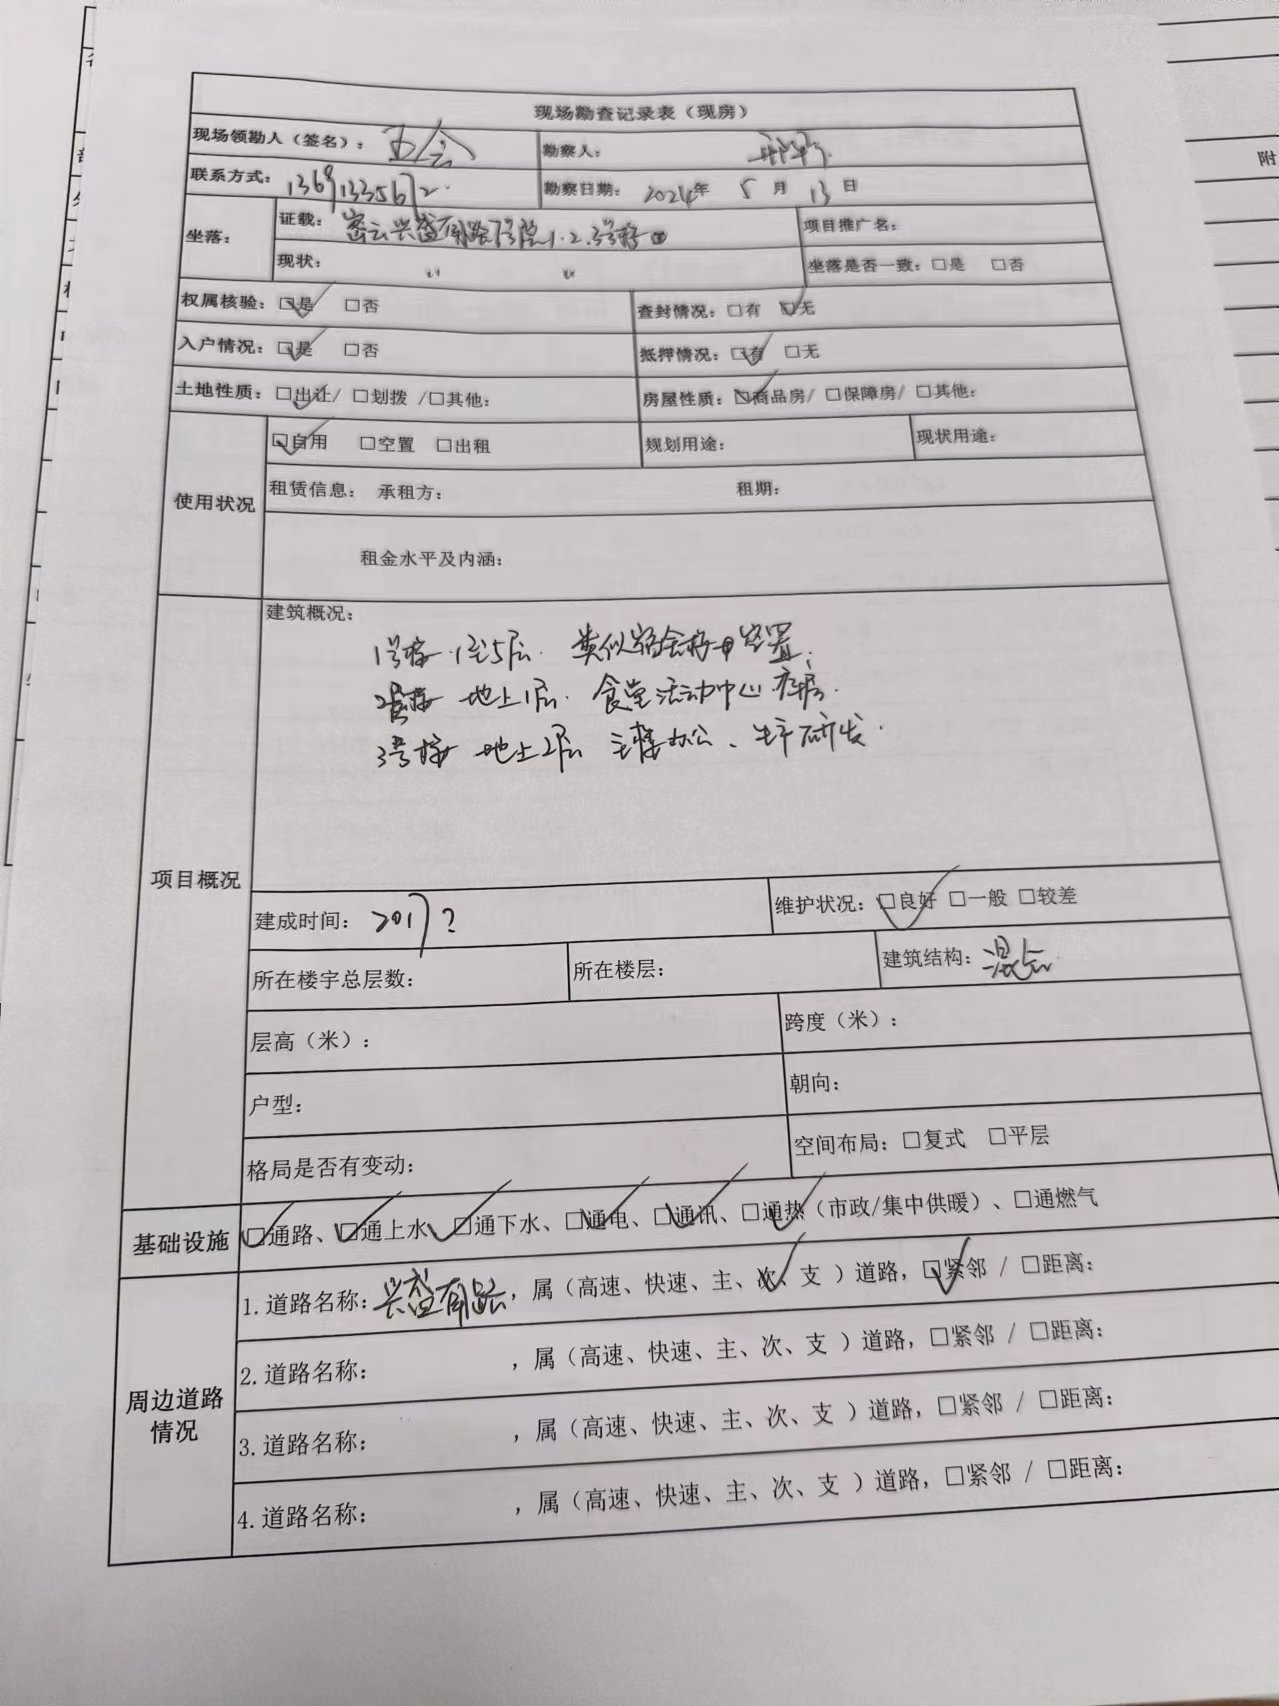 现场勘查记录表（现房）
现场领勘人（签名）： 王会 勘察人：
联系方式： 13691335672 勘察日期： 2024年 5月 13日
坐落： 证载： 密云兴盛南路7号院1.2.3号楼 项目推广名：
现状： 〃 〃 坐落是否一致：□是 □否
权属核验：☑是 □否 查封情况：□有 ☑无
入户情况：☑是 □否 抵押情况：☑有 □无
土地性质：☑出让/ □划拨 /□其他： 房屋性质：☑商品房/ □保障房/ □其他：
使用状况 ☑自用 □空置 □出租 规划用途： 现状用途：
租赁信息： 承租方： 租期：
租金水平及内涵：
项目概况 建筑概况：
1号楼 1至5层. 类似宿舍楼 空置;
2号楼 地上1层. 食堂活动中心 库房.
3号楼 地上2层 主楼办公、生产研发.
建成时间： 2017？ 维护状况：☑良好 □一般 □较差
所在楼宇总层数： 所在楼层： 建筑结构：混合
层高（米）： 跨度（米）：
户型： 朝向：
格局是否有变动： 空间布局：□复式 □平层
基础设施 ☑通路、☑通上水、☑通下水、☑通电、☑通讯、☑通热（市政/集中供暖）、□通燃气
周边道路情况 1.道路名称：兴盛南路，属（高速、快速、主、次、支 ）道路，☑紧邻 / □距离：
2.道路名称： ，属（高速、快速、主、次、支 ）道路，□紧邻 / □距离：
3.道路名称： ，属（高速、快速、主、次、支 ）道路，□紧邻 / □距离：
4.道路名称： ，属（高速、快速、主、次、支 ）道路，□紧邻 / □距离：
附